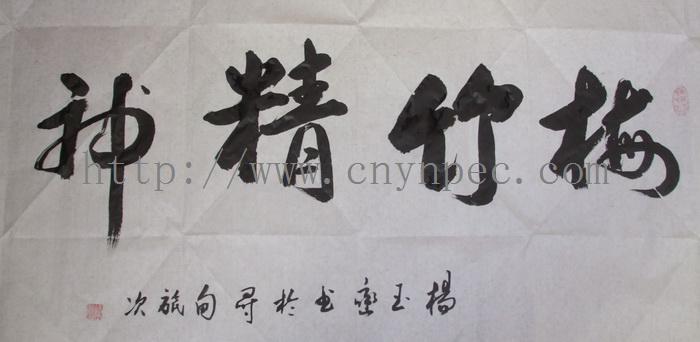 梅竹精神
楊玉巒书於尋甸旅次
http://www.cnynpec.com